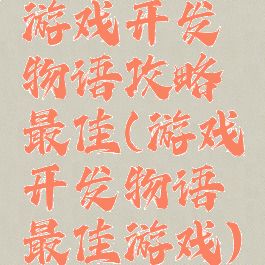 游戏开发
物语攻略
最佳(游戏
开发物语
最佳游戏)